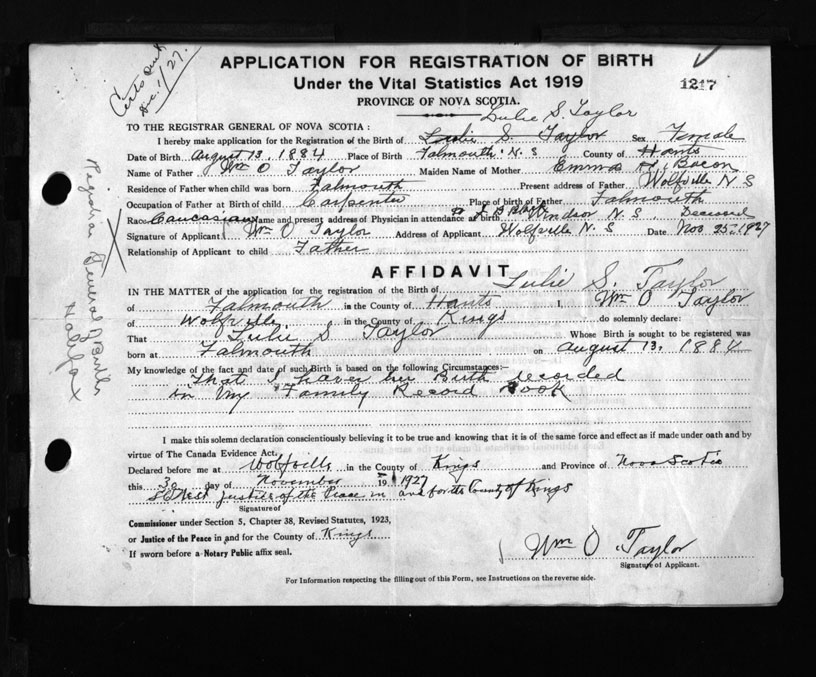 Certs Sent
Dec. 1/27.
APPLICATION FOR REGISTRATION OF BIRTH
Under the Vital Statistics Act 1919
1217
PROVINCE OF NOVA SCOTIA.
Lulie S. Taylor
TO THE REGISTRAR GENERAL OF NOVA SCOTIA :
I hereby make application for the Registration of the Birth of Leslie S. Taylor Sex Female
Date of Birth August 13, 1884 Place of Birth Falmouth. N. S County of Hants
Name of Father Wm O Taylor Maiden Name of Mother Emma H. Bacon
Residence of Father when child was born Falmouth Present address of Father Wolfville N S
Occupation of Father at Birth of child Carpenter Place of birth of Father Falmouth
Race Caucasian Name and present address of Physician in attendance at birth. Black Windsor N. S. Deceased
Signature of Applicant Wm O Taylor Address of Applicant Wolfville N. S Date Nov 25th 1927
Relationship of Applicant to child Father
Registrar General J Births
Halifax
AFFIDAVIT
IN THE MATTER of the application for the registration of the Birth of Lulie S. Taylor
of Falmouth in the County of Hants I, Wm O Taylor
of Wolfville in the County of Kings do solemnly declare:
That Lulie S Taylor Whose Birth is sought to be registered was
born at Falmouth on August 13, 1884
My knowledge of the fact and date of such Birth is based on the following Circumstances:—
That I have her Birth recorded
in my Family Record Book
I make this solemn declaration conscientiously believing it to be true and knowing that it is of the same force and effect as if made under oath and by
virtue of The Canada Evidence Act.
Declared before me at Wolfville in the County of Kings and Province of Nova Scotia
this 30 day of November 19 1927
Justice of the Peace in and for the County of Kings
Signature of
Commissioner under Section 5, Chapter 38, Revised Statutes, 1923,
or Justice of the Peace in and for the County of Kings
If sworn before a Notary Public affix seal.
Wm O Taylor
Signature of Applicant.
For Information respecting the filling out of this Form, see Instructions on the reverse side.